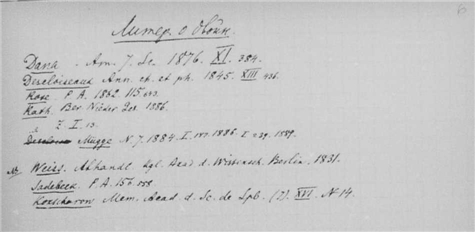 Литер. о двойн.
Dana - Am. J. Sc. 1876. XI. 384.
Descloiseaux Ann. ch. et ph. 1845. XIII 436.
Rose P. A. 1862. 115
Rath. Ber. Nieder. Ges. 1886.
Z. I. 13.
Mügge N. J. 1884. I. 1886. I 1889.
Weiss. Abhandl. kgl. Acad d. Wissensch. Berlin. 1831.
Sadebeck. P. A. 156.
Kokscharow Mem. Acad d. Sc. de Spb. (2). XVI. N 14.